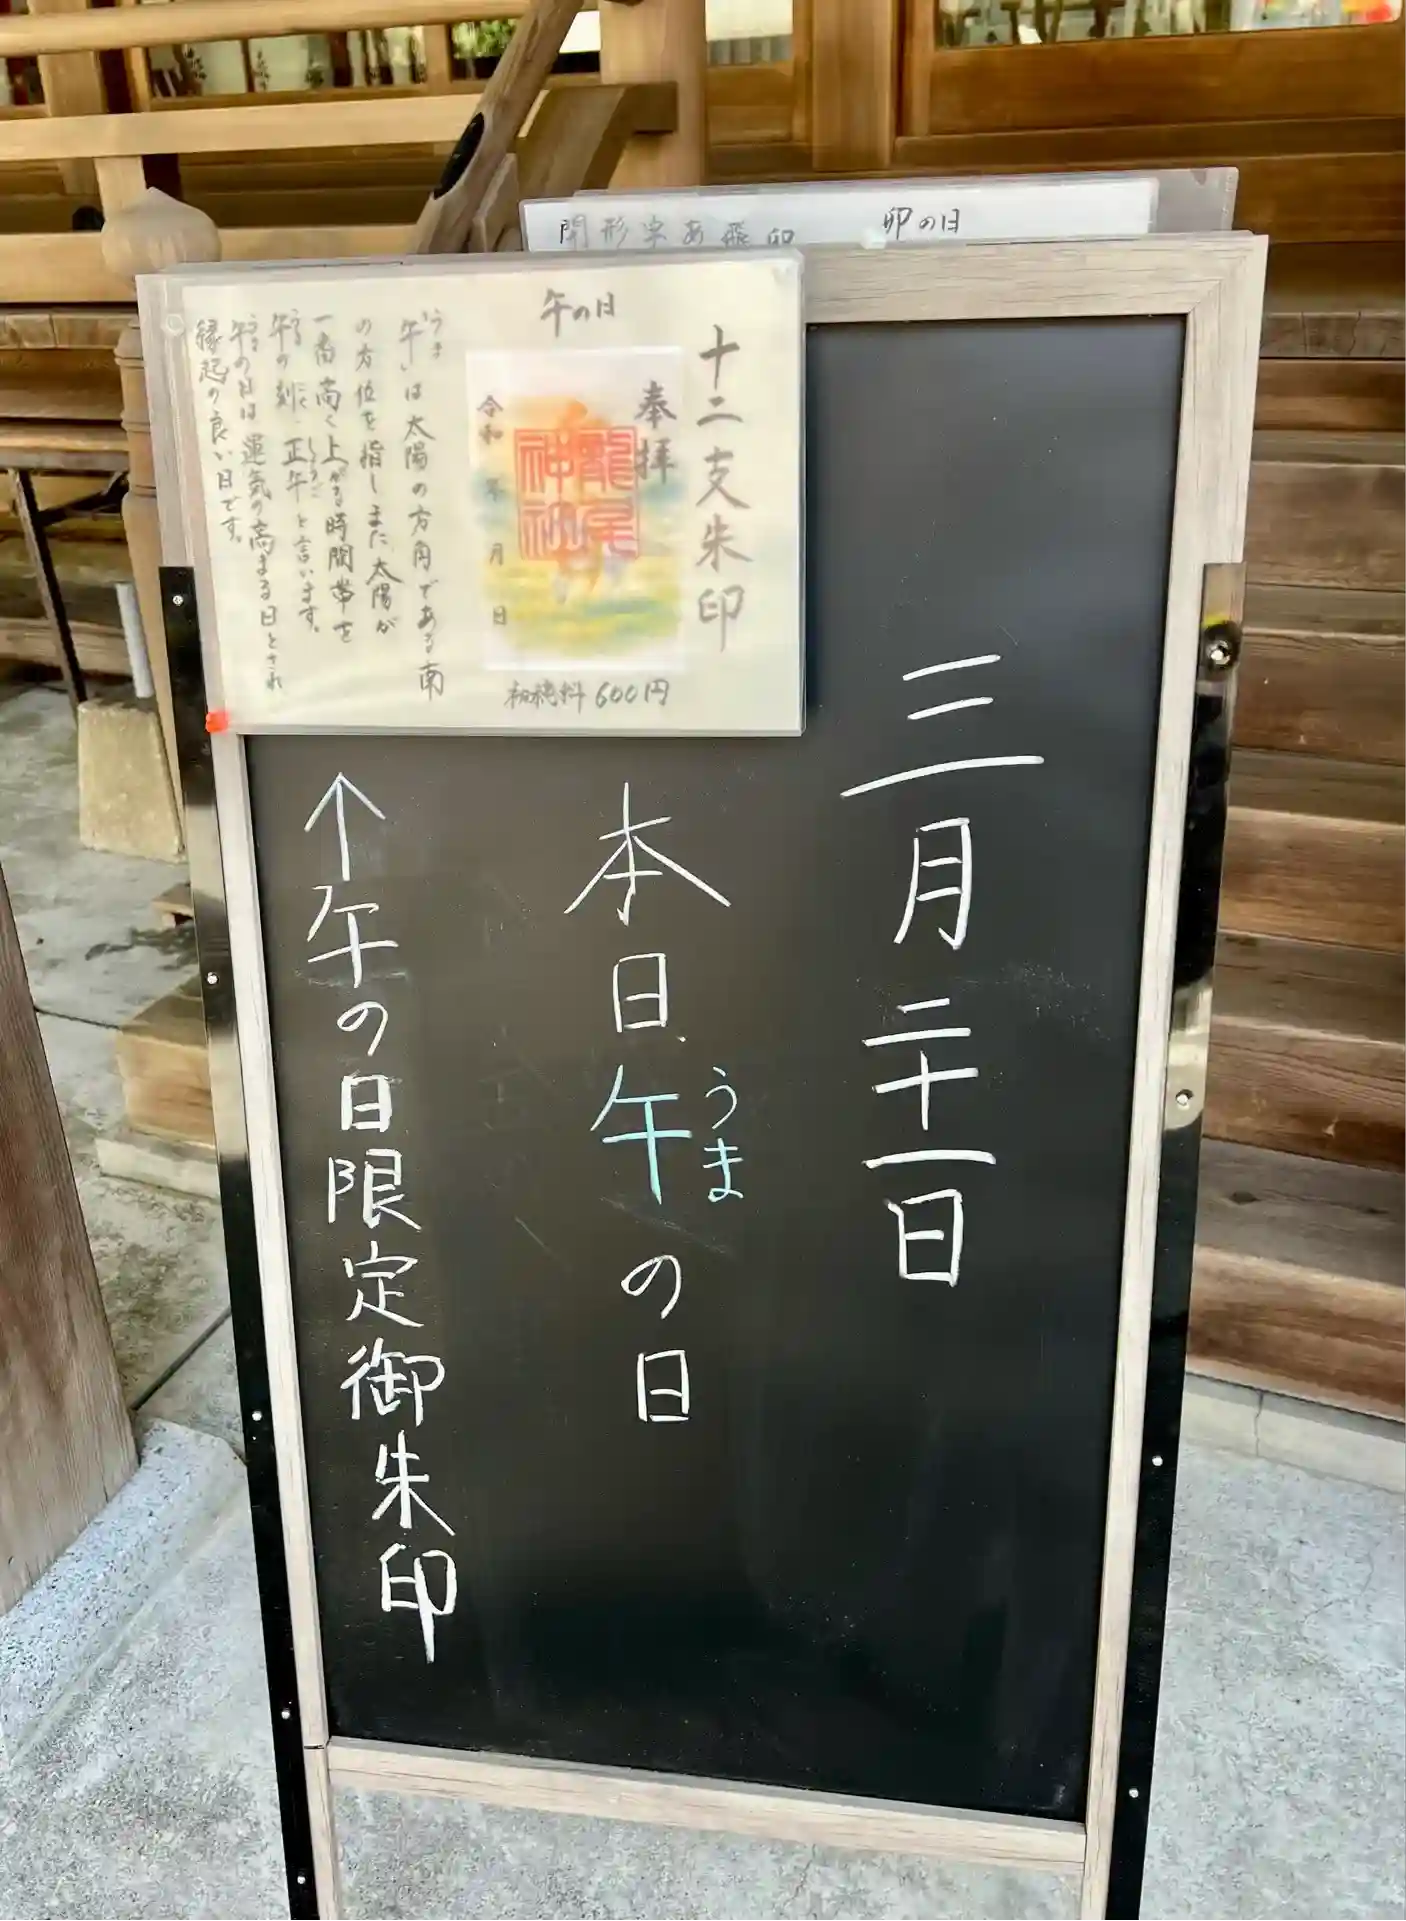 卯の日
十二支朱印
午の日
奉拝
龍尾
神社
令和 年 月 日
初穂料 600円
うま
「午」は太陽の方角である南
の方位を指しまた太陽が
一番高く上がる時間帯を
午の刻、正午と言います。
午の日は運気の高まる日とされ
縁起の良い日です。
三月二十一日
本日、午の日
うま
↑午の日限定御朱印